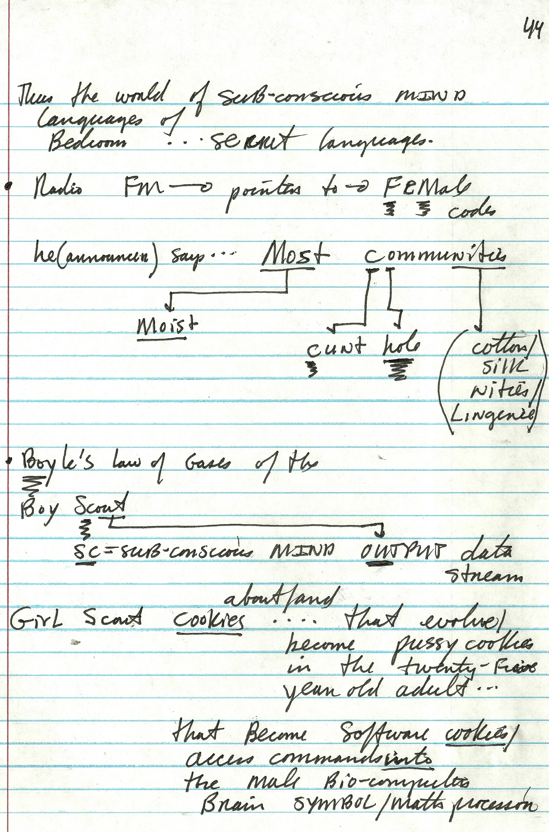 44
Thus the world of SUB-conscious MIND
Languages of
Bedroom ... secret languages.
• Radio FM → pointers to → FEMale
codes
he (announcer) says... Most Communities
Moist
cunt hole (cotton/
silk
nities/
Lingerie)
• Boyle's law of Gases of the
Boy Scout
SC = SUB-conscious MIND OUTPUT data
stream
about/and
Girl Scout cookies .... that evolve/
become pussy cookies
in the twenty-Five
year old adult...
that Become Software cookies/
access commands into
the male Bio-computer
Brain SYMBOL/math processor